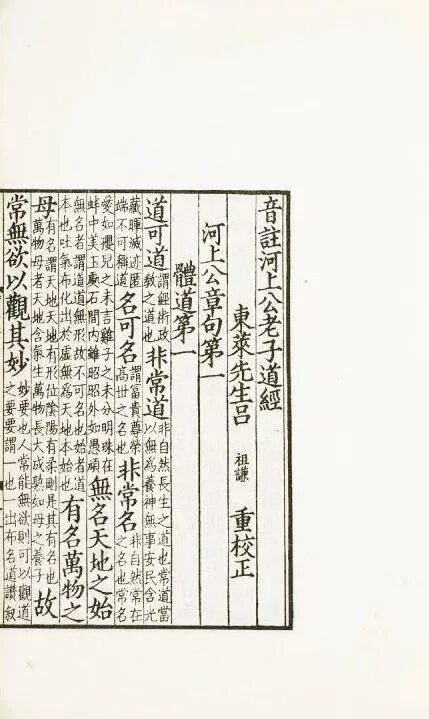 音註河上公老子道經
東萊先生呂 祖謙 重校正
河上公章句第一
體道第一
道可道謂經術政教之道也非常道非自然長生之道也常道當以無為養神無事安民含光
藏暉滅迹匿端不可稱道名可名謂富貴尊榮高世之名也非常名非自然常在之名也常名
愛如櫻兒之未言雞子之未分明珠在蚌中美玉處石間内雖昭昭外如愚頑無名天地之始
無名者謂道道無形故不可名也始者道本也吐氣布化出於虛無為天地本始也有名萬物之
母有名謂天地天地有形位陰陽有柔剛是其有名也萬物母者天地含氣生萬物長大成熟如母之養子故
常無欲以觀其妙妙要也人常能無欲則可以觀道之要要謂一也一出布名道讚叙